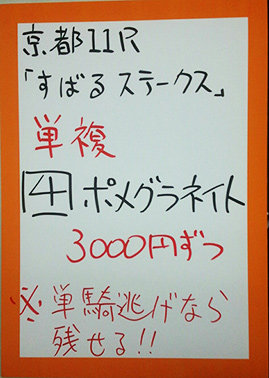 京都11R
「すばるステークス」
単複
4 ポメグラネイト
3000円ずつ
※単騎逃げなら
残せる!!